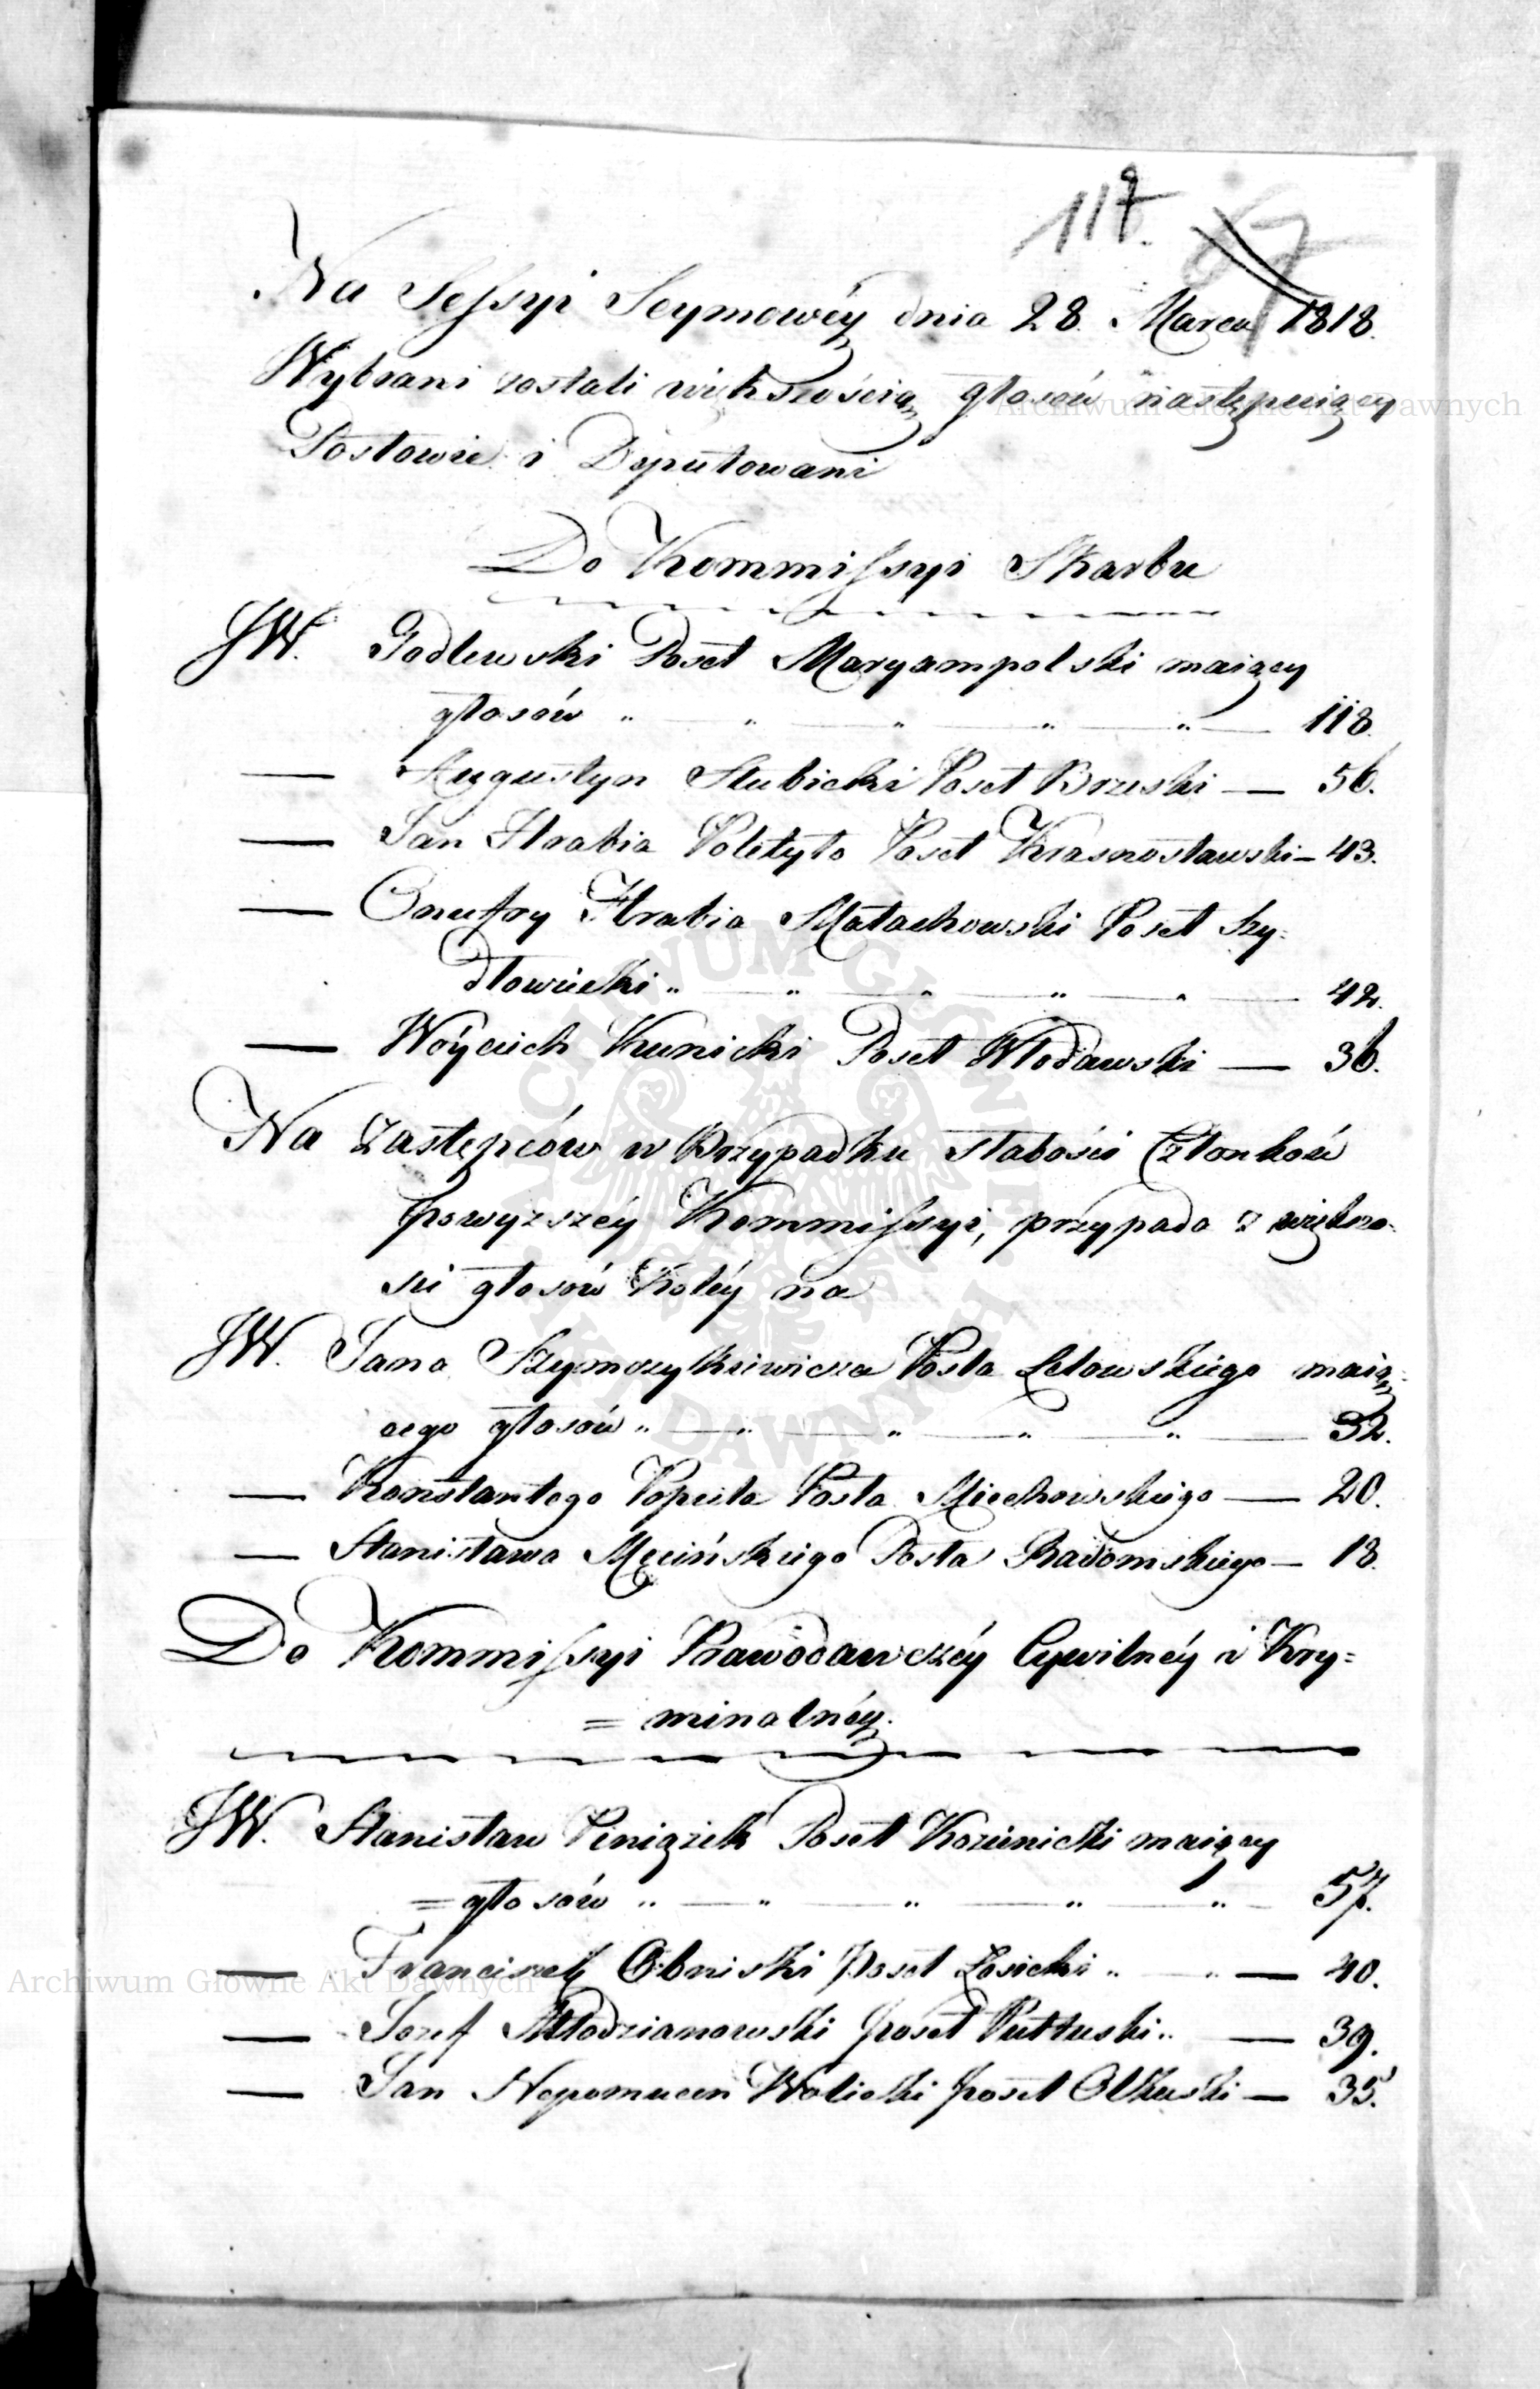 117.
Na Sessyi Seymowéy dnia 28. Marca 1818.
Wybrani zostali większością głosów następuiący
Posłowie i Deputowani
Do Kommissyi Skarbu
JW. Godlewski Poseł Maryampolski maiący
głosów „ — „ — „ — „ — „ — 118.
— Augustyn Słubicki Poseł Brzeski — 56.
— Jan Hrabia Poletyło Poseł Krasnostawski — 43.
— Onufry Hrabia Małachowski Poseł Szy-
dłowiecki „ — „ — „ — „ — „ — 42.
— Wóyciech Kunicki Poseł Włodawski — 36.
Na Zastępców w Przypadku słabości Członków
powyższéy Kommissyi, przypada z większo-
ści głosów Koléy na
JW. Jana Szymczykiewicza Posła Lelowskiego maią-
cego głosów „ — „ — „ — „ — „ — 32.
— Konstantego Popiela Posła Miechowskiego — 20.
— Stanisława Męcińskiego Posła Radomskiego — 18.
Do Kommissyi Prawodawczéy Cywilnéy i Kry=
= minalnéy.
JW. Stanisław Pieniążek Poseł Kozienicki maiący
= głosów „ — „ — „ — „ — „ — 57.
— Franciszek Obniski Poseł Łosicki „ — „ — 40.
— Jozef Młodzianowski Poseł Pułtuski „ — 39.
— Jan Nepomucen Wolicki Poseł Olkuski — 35.
Archiwum Główne Akt Dawnych
Archiwum Główne Akt Dawnych
ARCHIWUM GŁÓWNE AKT DAWNYCH